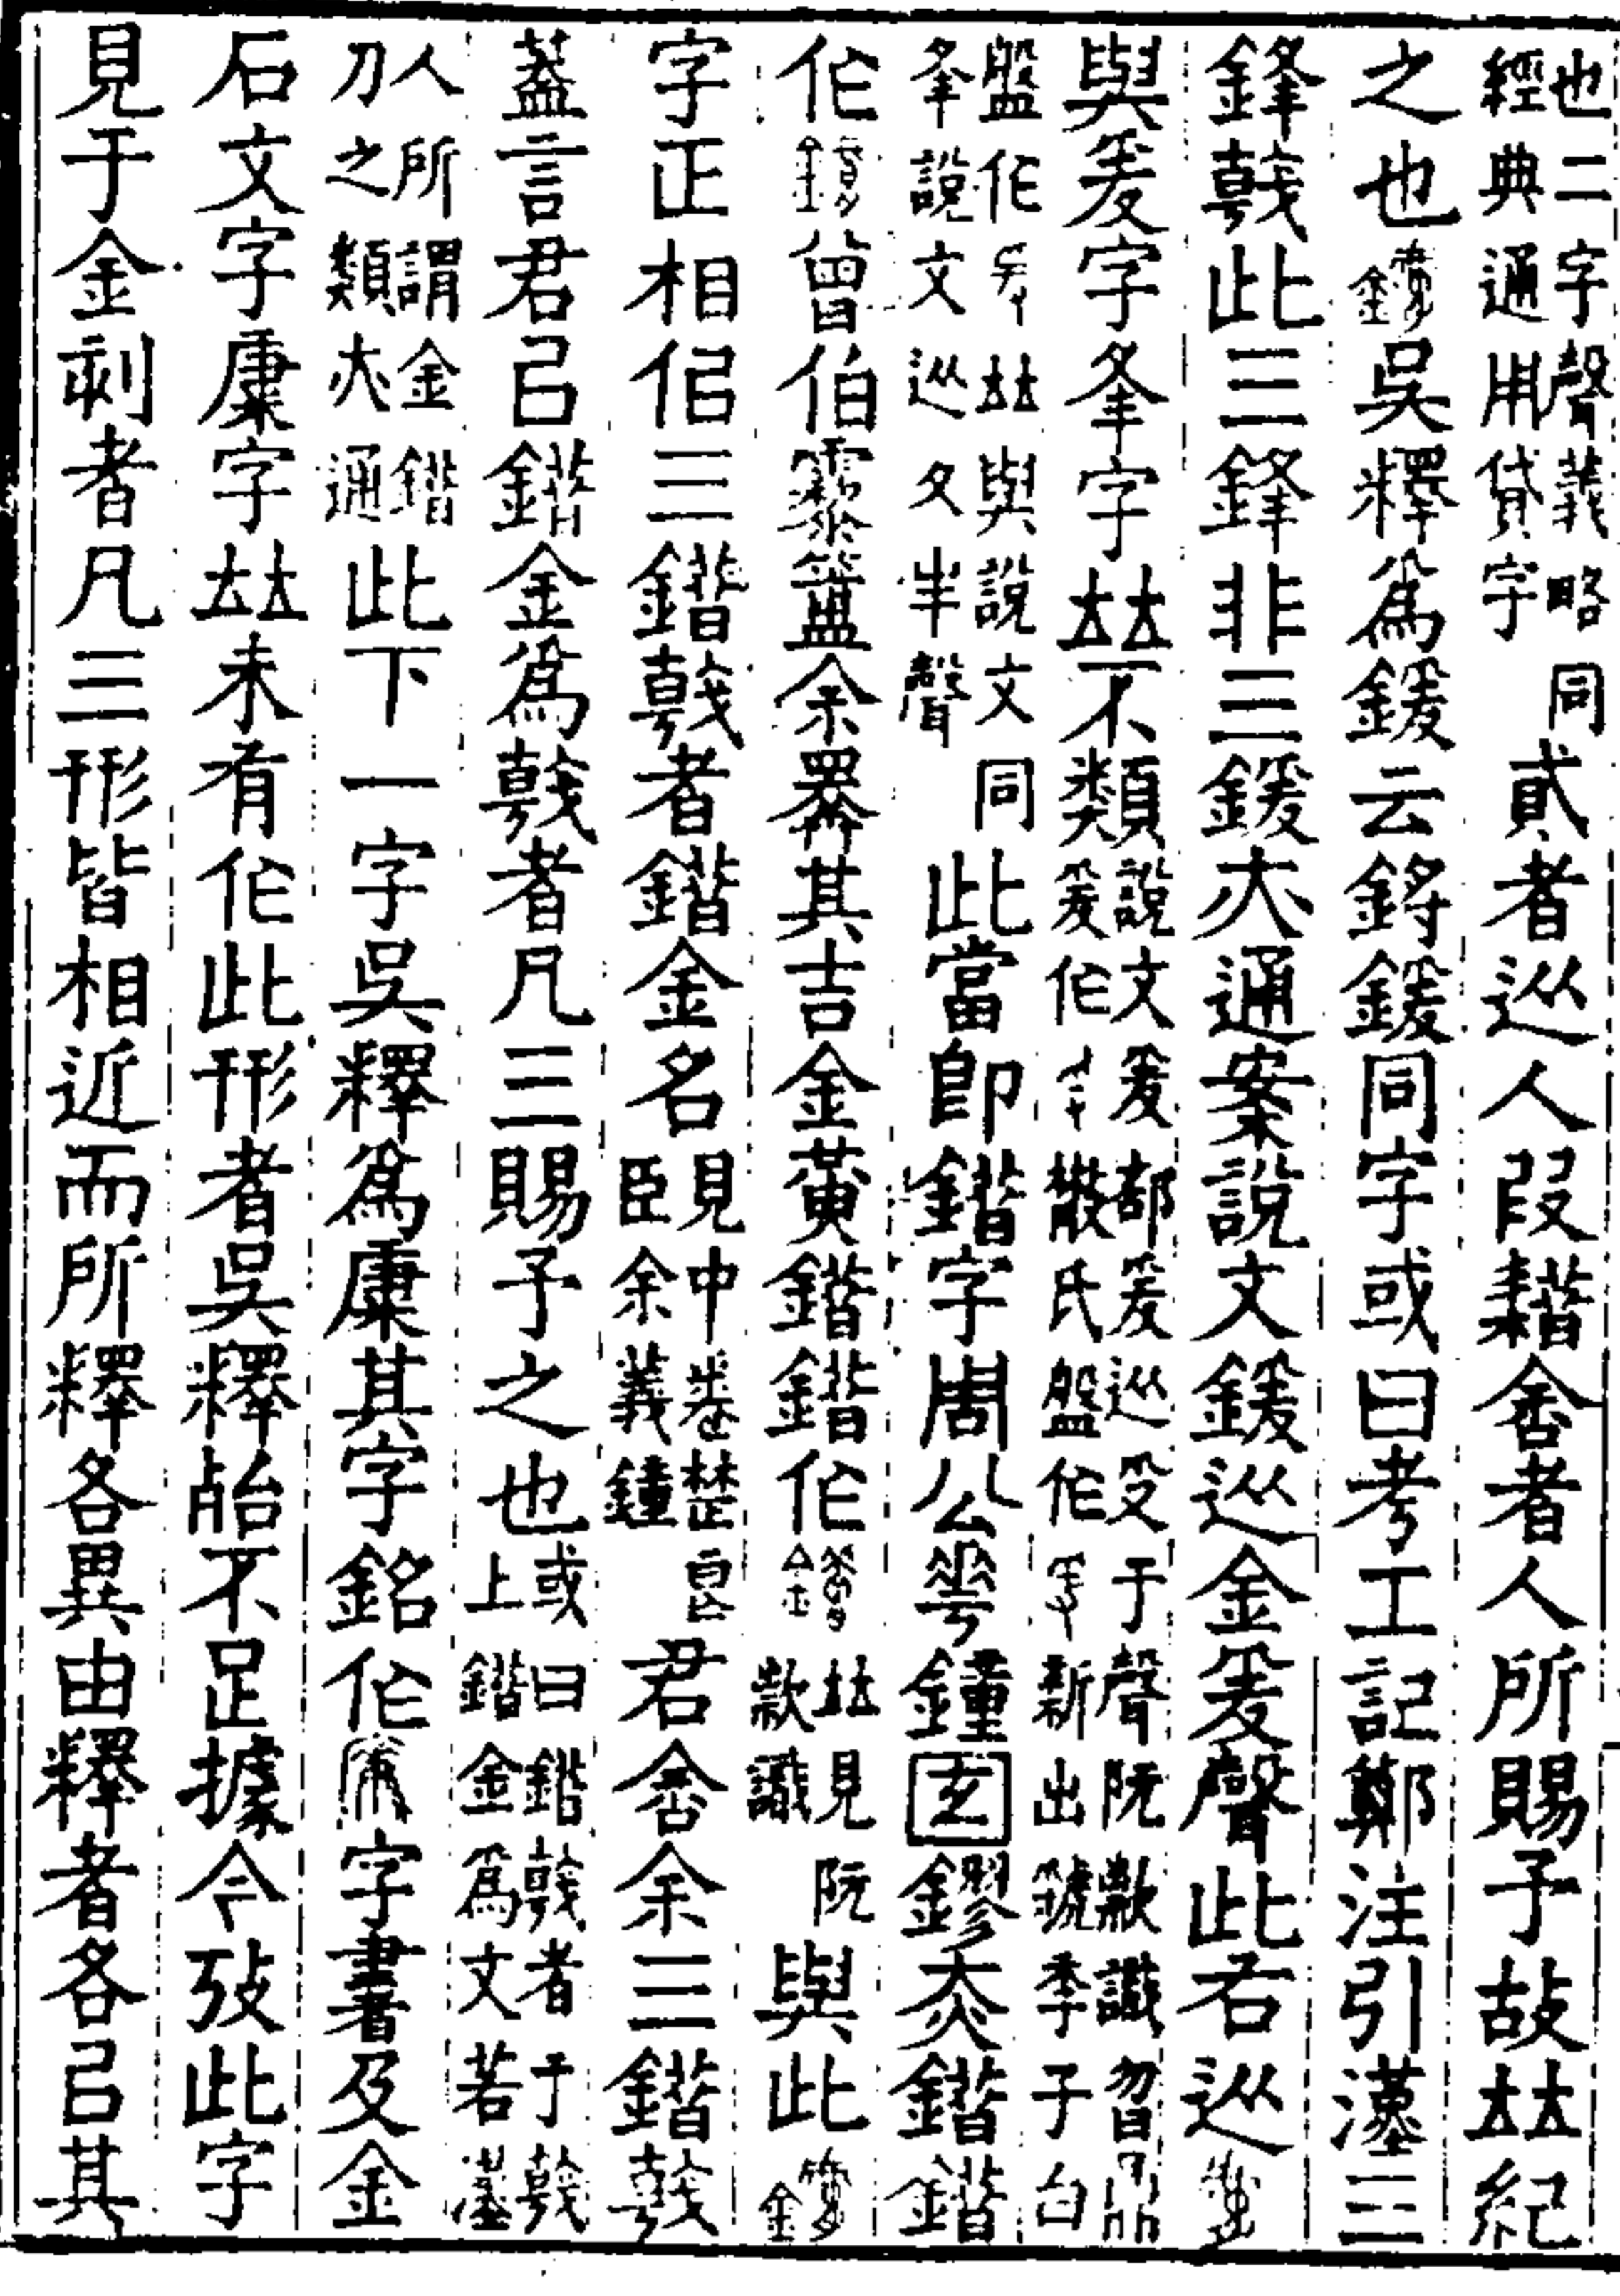 也二字聲義略同
經典通用貸字
貳者從人叚耤舍者人所賜予故𠀤紀
之也吳釋爲鍰云鋝鍰同字或曰考工記鄭注引漢三
鋒戟此三鋒非三鍰亦通案說文鍰從金爰聲此右從
與爰字夆字𠀤不類
說文爰部爰從𠬪于聲阮款識曶鼎
爰作散氏盤作新出虢季子白
盤作𠀤與說文同
夆說文從夊半聲
此當即鍇字周公華鐘玄鏐赤鍇鍇
作曾伯霥簠余睪其吉金黃鍇鍇作
𠀤見阮
款識
與此
字正相侣三鍇戟者鍇金名
見中卷楚良
臣余義鐘
君舍余三鍇戟
蓋言君㠯鍇金爲戟者凡三賜予之也
或曰鍇戟者于戟
上鍇金爲文若漢
人所謂金鍇
刀之類亦通
此下一字吳釋爲其字銘作字書及金
石文字字𠀤未有作此形者吳釋殆不足據今攷此字
見于金刻者凡三形皆相近而所釋各異由釋者各㠯其